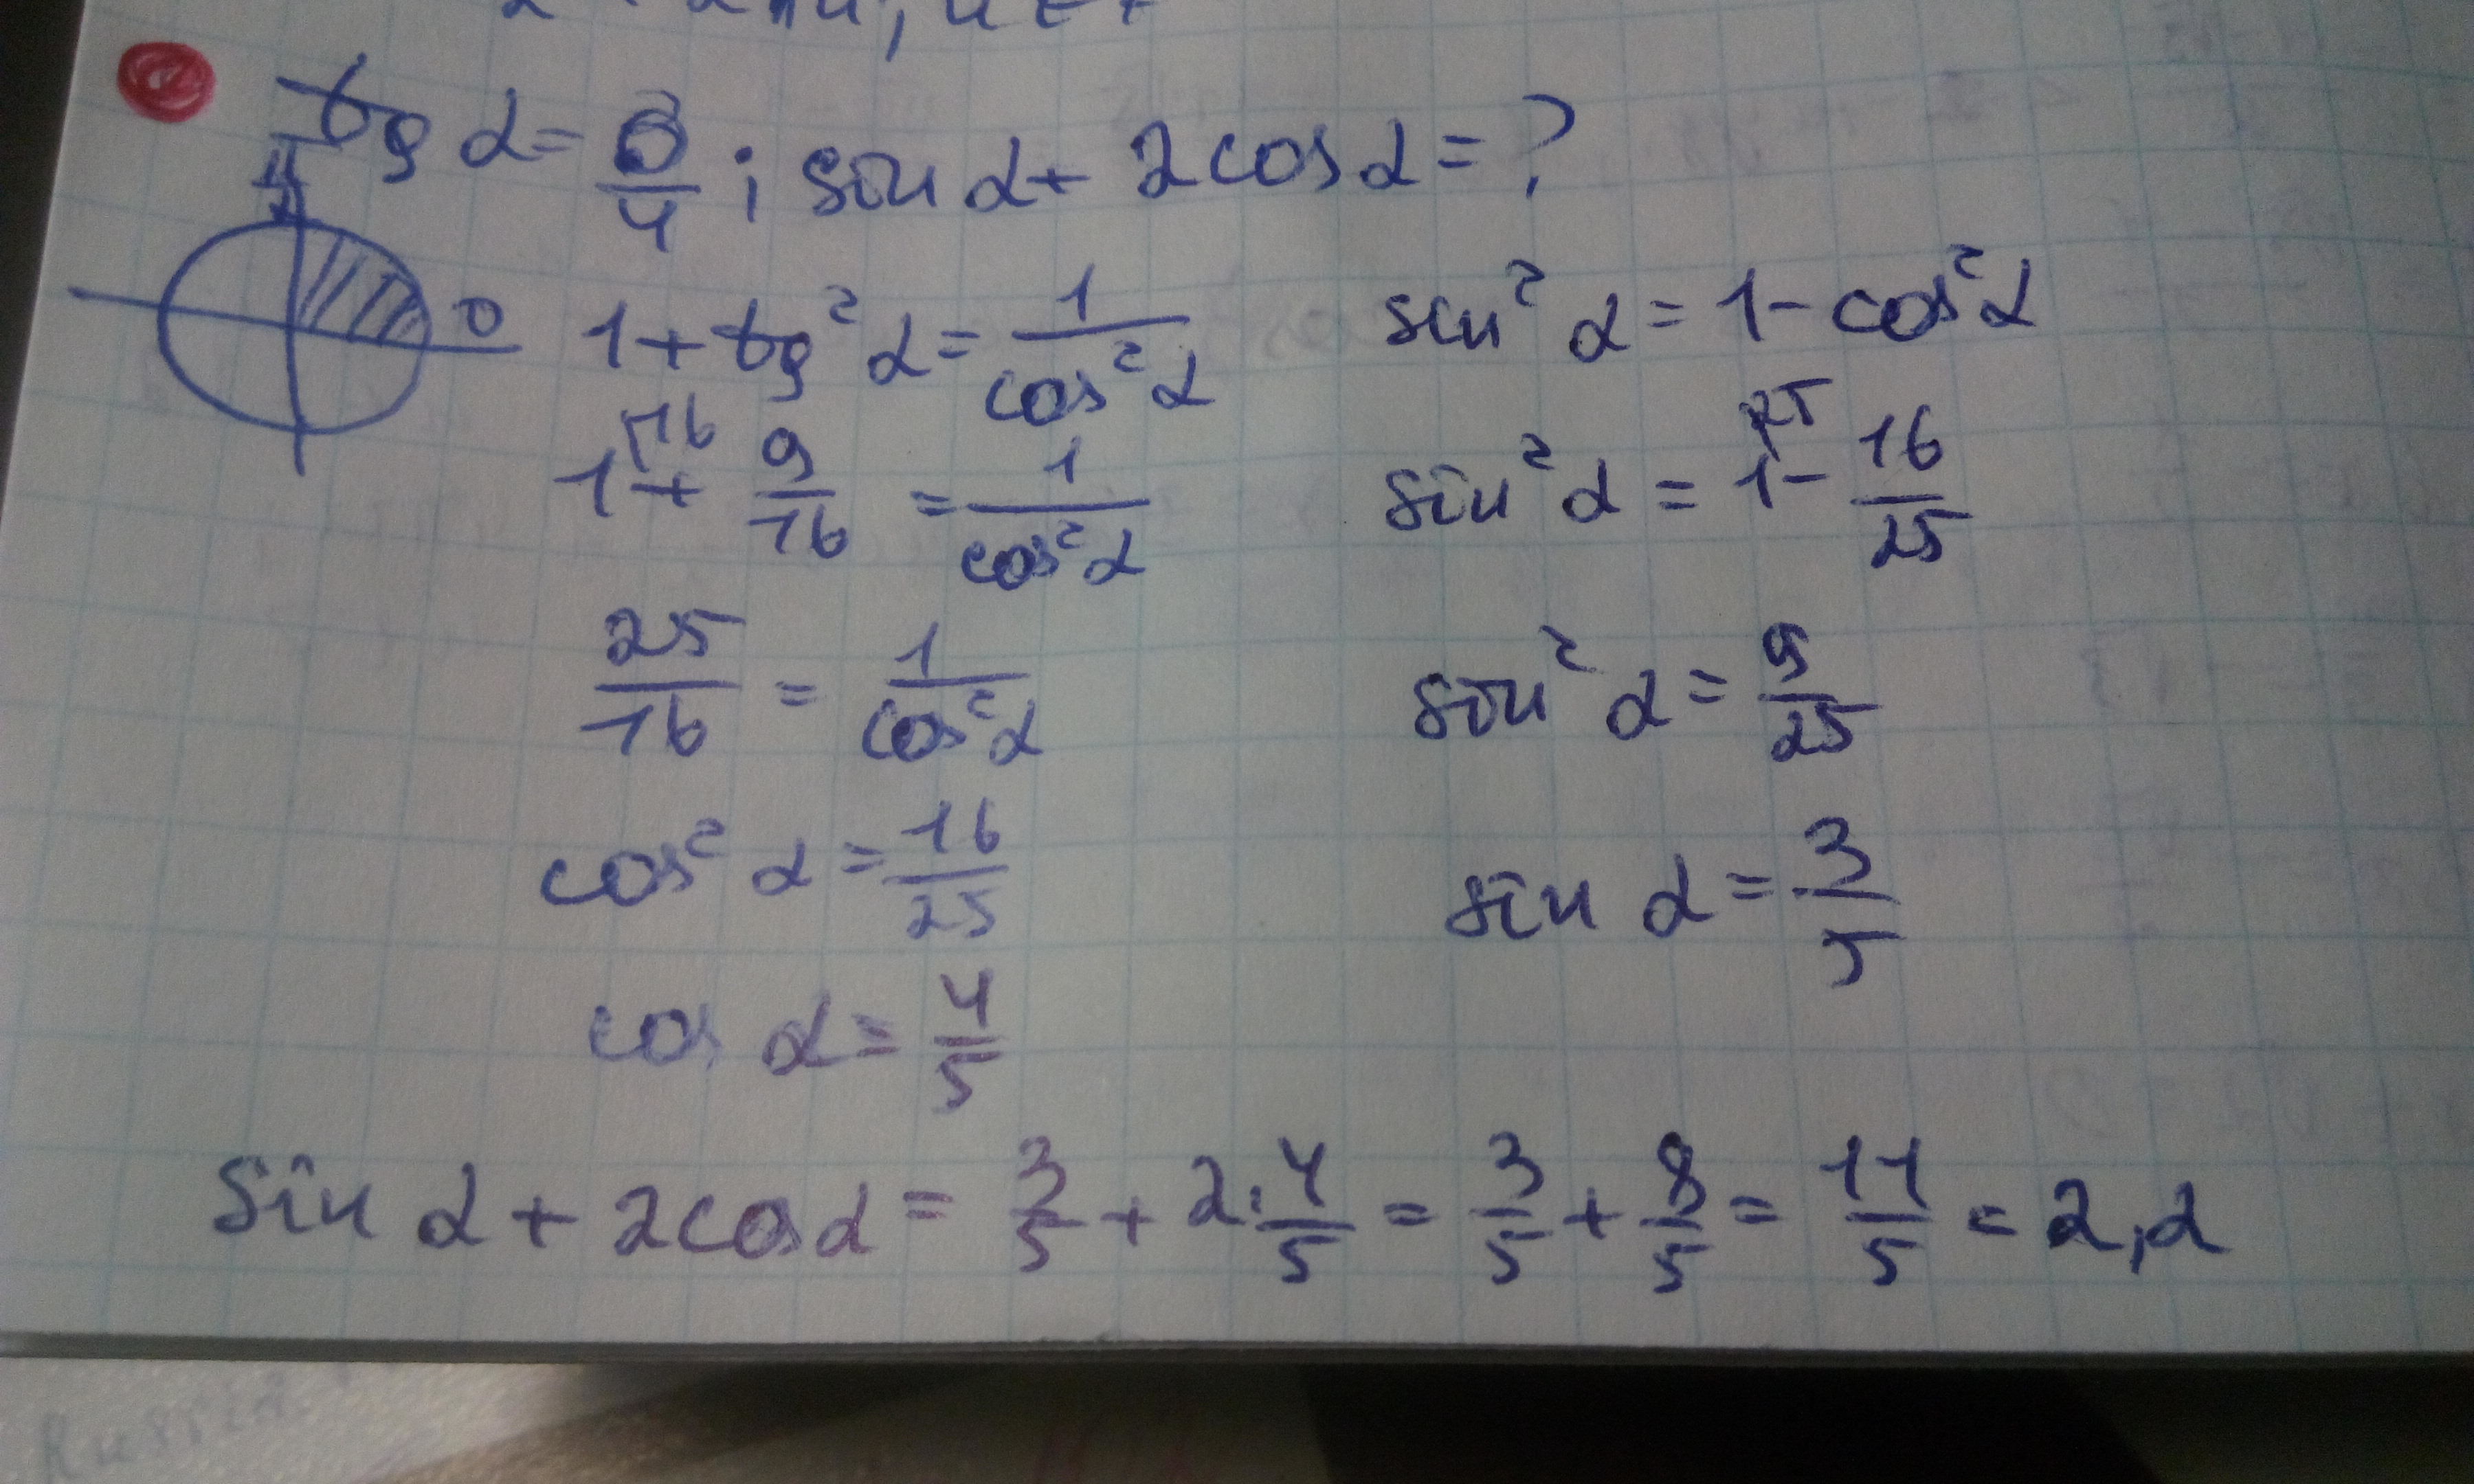 tg α = 3/4 ; sin α + 2cos α = ?
0
1 + tg² α = 1/cos² α
16
1 + 9/16 = 1/cos² α
25/16 = 1/cos² α
cos² α = 16/25
cos α = 4/5
sin² α = 1 - cos² α
25
sin² α = 1 - 16/25
sin² α = 9/25
sin α = 3/5
sin α + 2cos α = 3/5 + 2·4/5 = 3/5 + 8/5 = 11/5 = 2,2